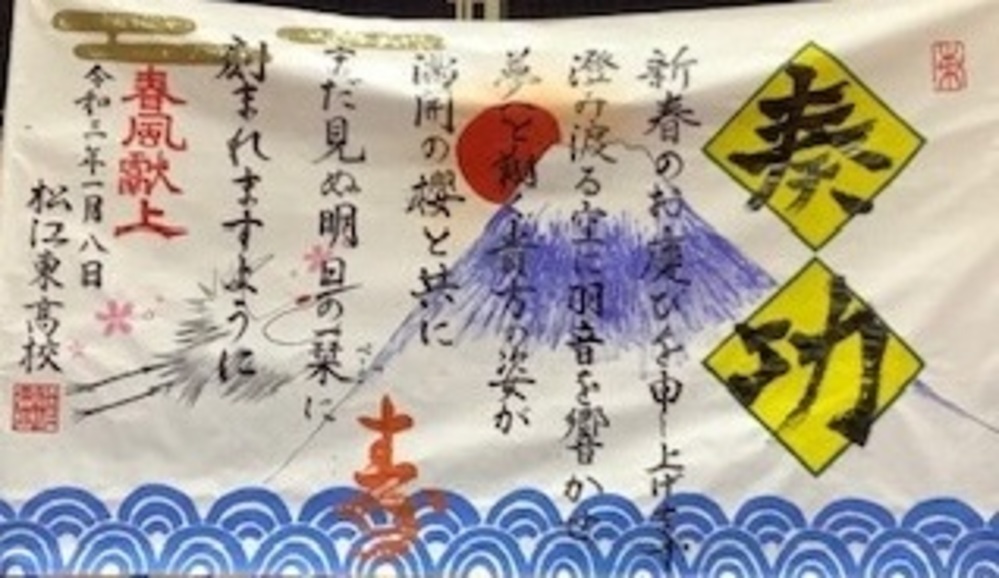 奏功
新春のお慶びを申し上げます
澄み渡る空に羽音を響かせ
夢へと翔く貴方の姿が
満開の櫻と共に
まだ見ぬ明日の一栞に
刻まれますように
春風献上
令和三年一月八日
松江東高校
寿